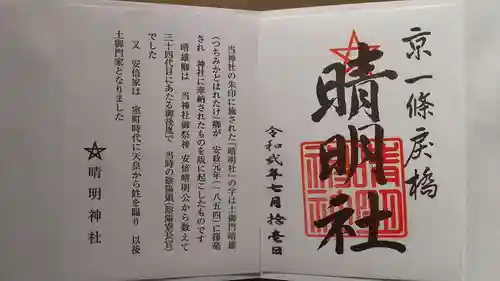 京一條戻橋
晴明社
令和弐年七月拾壱日
当神社の朱印に施された「晴明社」の字は土御門晴雄
(つちみかどはれたけ)卿が 安政元年(一八五四)に揮毫
され 神社に奉納されたものを版に起こしたものです
晴雄卿は 当神社御祭神 安倍晴明公から数えて
三十四代目にあたる御後胤で 当時の陰陽頭(陰陽寮長官)
でした
又 安倍家は 室町時代に天皇から姓を賜り 以後
土御門家となりました
晴明神社